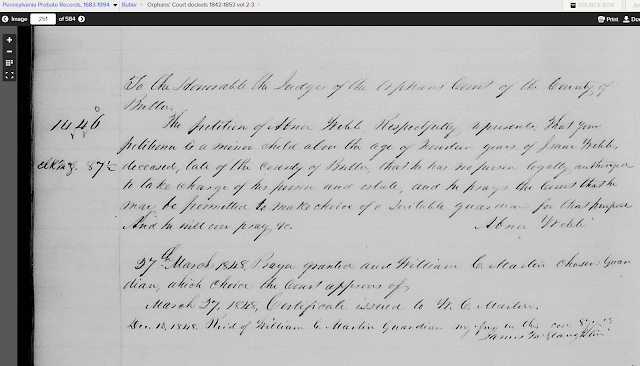 Pennsylvania Probate Records, 1683-1994 Butler Orphans' Court dockets 1842-1853 vol 2-3
SOURCE BOX
Image 251 of 584 Print Do
To the Honorable the Judges of the Orphans Court of the County of
Butler,
The petition of Abner Webb Respectfully represents, That your
petitioner is a minor child above the age of fourteen years of Isaac Webb,
deceased, late of the County of Butler, that he has no person legally authorized
to take charge of his person and estate, and he prays the Court that he
may be permitted to make choice of a Suitable guardian for that purpose
And he will ever pray, &c. Abner Webb
27th March 1848, Prayer granted and William C. Martin chosen Guar
dian, which choice the Court approves of,
March 27, 1848, Certificate issued to W. C. Martin.
Dec. 13, 1848, Recd of William C. Martin Guardian my fees in this case 87½
James McLaughlin